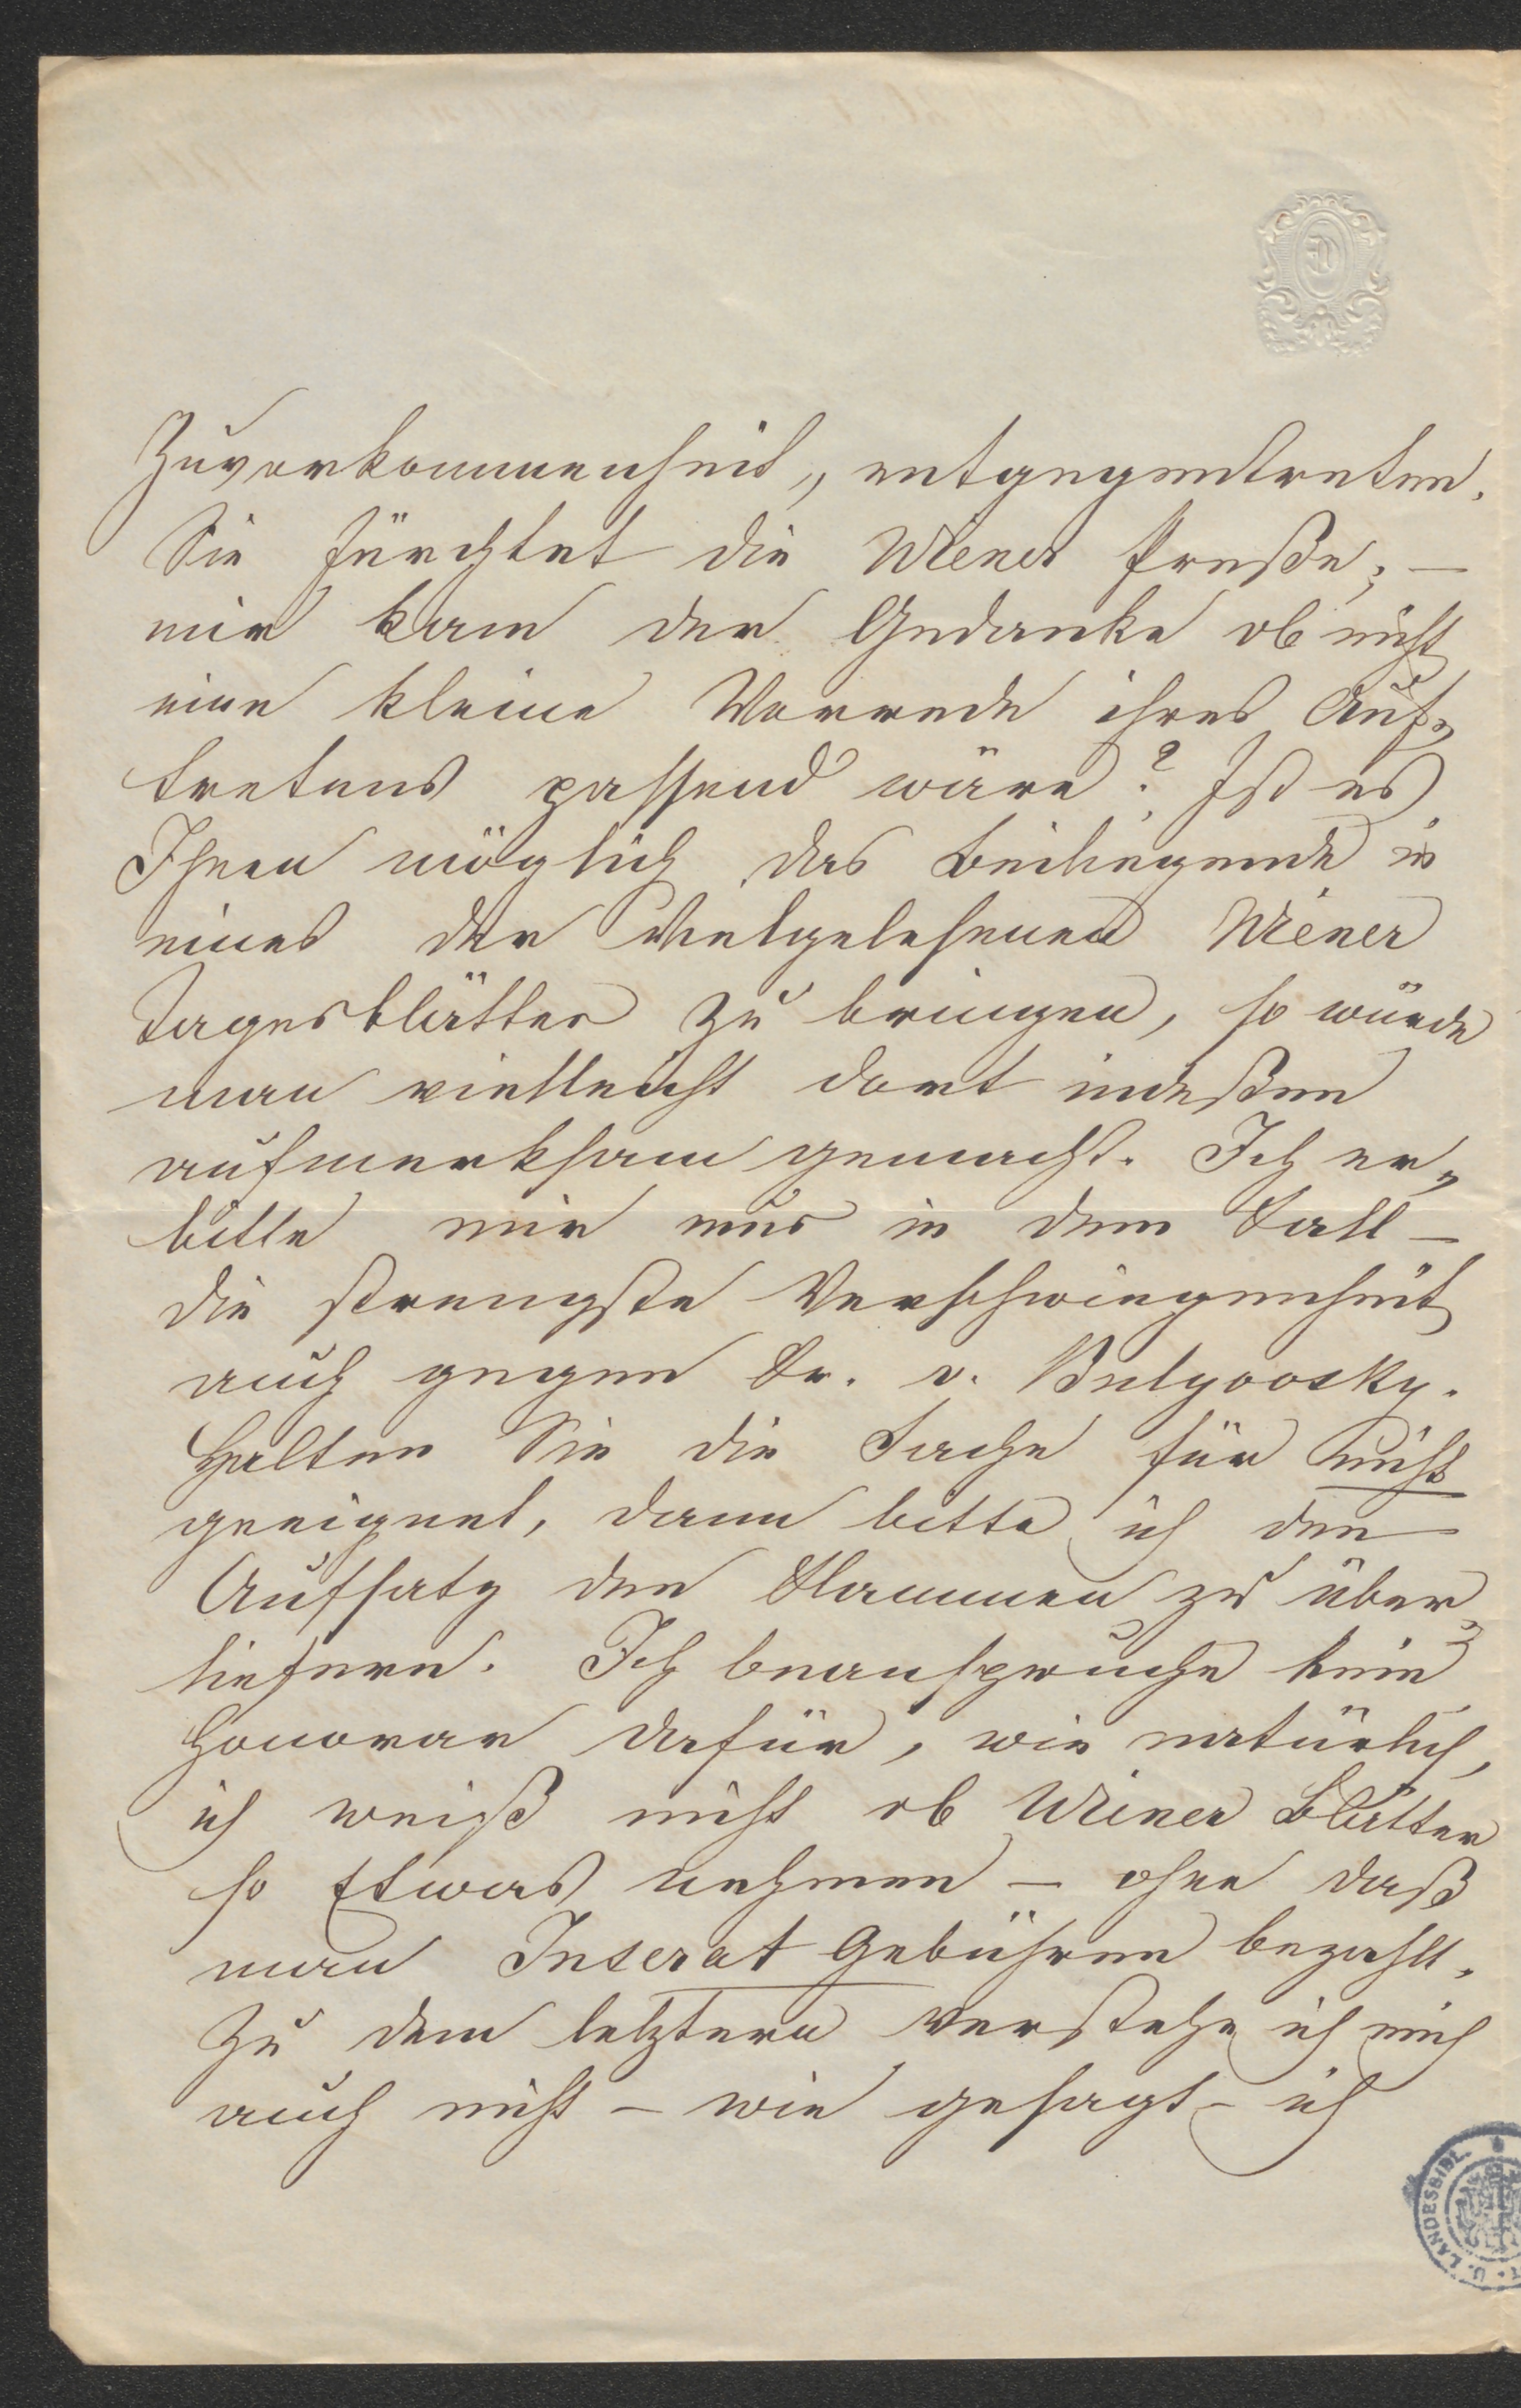 Zuvorkommenheit„ entgegentreten.
Sie fürchtet die Wiener Preße; –
mir kam der Gedanke ob nicht
eine kleine Vorrede ihres Auf„
tretens passend wäre? Ist es
Ihnen möglich das Beiliegende in
eines der vielgelesenen Wiener
Tagesblätter zu bringen, so würde
man vielleicht dort indeßen
aufmerksam gemacht. Ich er„
bitte mir nur in dem Fall –
die strengste Verschwiegenheit
auch gegen Fr. v. Bulyovsky.
Halten Sie die Sache für nicht
geeignet, dann bitte ich den
Aufsatz den Flammen zu über„
liefern. Ich beanspruche kein
Honorar dafür, wie natürlich,
ich weiß nicht ob Wiener Blätter
so Etwas nehmen – ohne daß
man Inserat Gebühren bezahlt.
Zu dem letztern verstehe ich mich
auch nicht – wie gesagt – ich
U. LANDESBIBL.